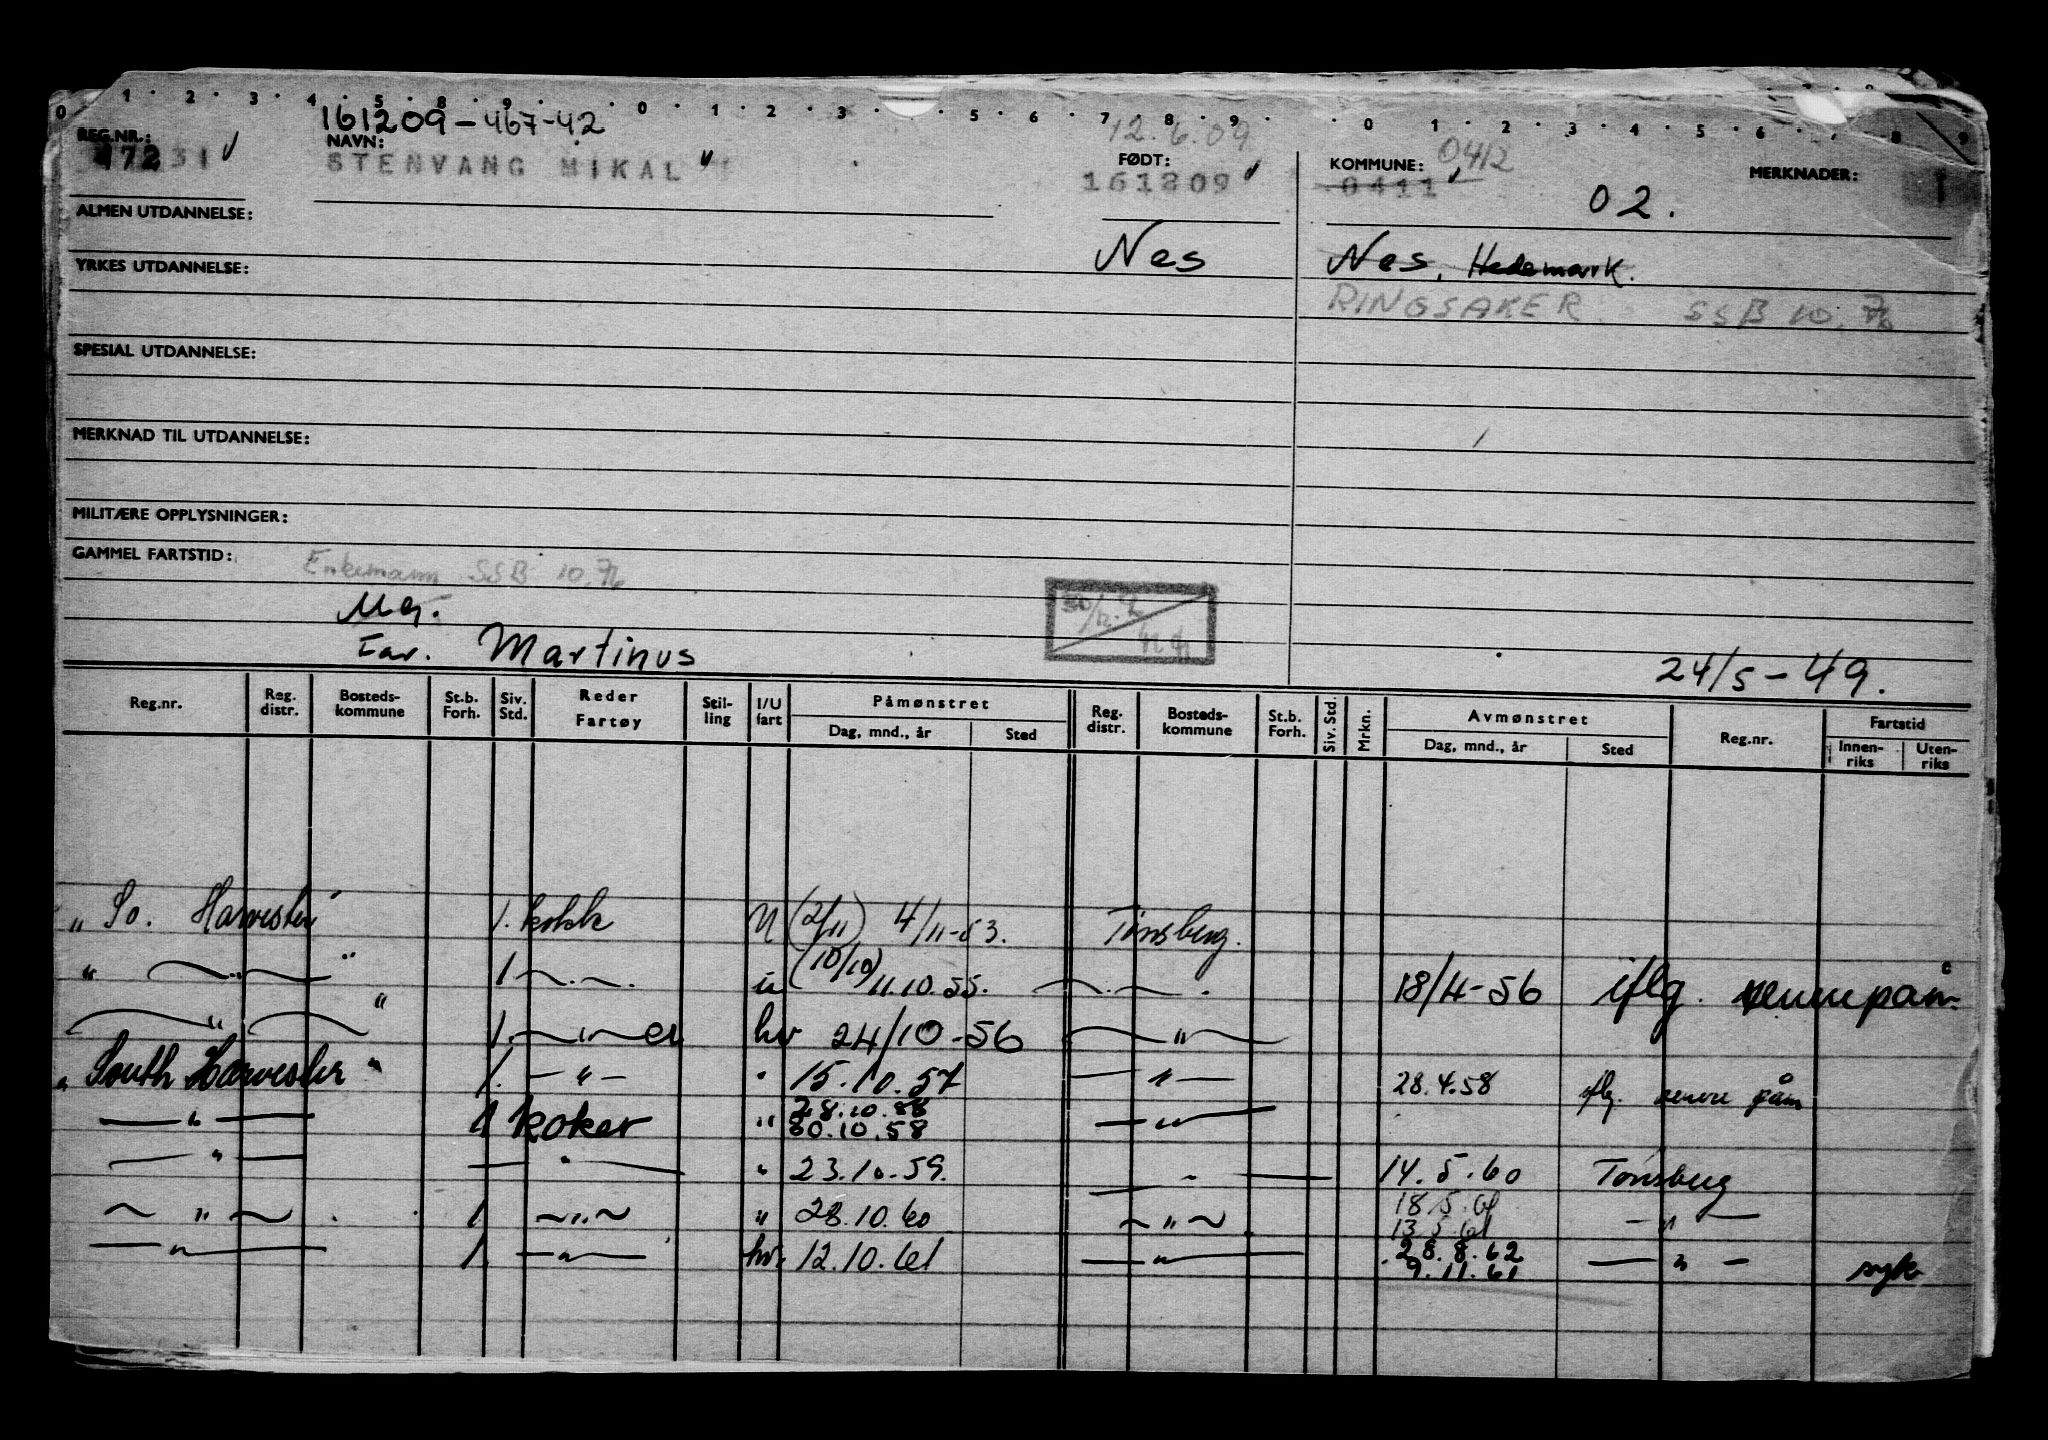 0 1 2 3 4 5 8 9 0 1 2 3 5 6 7 8 9 0 1 2 3 4 5 6 7 8 9
161209-467-42
12.6.09
REG.NR.: NAVN: FØDT: KOMMUNE: 0412 MERKNADER:
47231 STENVANG MIKAL 161209 0411 02. 1
ALMEN UTDANNELSE:
Nes Nes, Hedemark.
YRKES UTDANNELSE:
RINGSAKER SSB 10.76
SPESIAL UTDANNELSE:
MERKNAD TIL UTDANNELSE:
MILITÆRE OPPLYSNINGER:
GAMMEL FARTSTID: Enkemann SSB 10.76
Far. Martinus
24/5-49.
Reg.nr. Reg. distr. Bosteds-kommune St.b. Forh. Siv. Std. Reder Fartøy Stil-ling I/U fart Påmønstret Dag, mnd., år Sted Reg. distr. Bosteds-kommune St.b. Forh. Siv. Std. Mrkn. Avmønstret Dag, mnd., år Sted Reg.nr. Fartstid Innen-riks Uten-riks
" So. Harvester" 1. kokk U (2/11) 4/11-53. Tønsberg.
" — " — " 1 — . — . u (10/10) 11.10.55. — . — . 18/4-56 iflg. senere påm.
— " — " 1. — " — er hv 24/10-56 — " —
" South Harvester " 1. — " — " 15.10.57 — " — 28.4.58 iflg. senere påm
— " — 1 koker " 28.10.58 — " —
30.10.58
— " — — " — " 23.10.59. — " — 14.5.60 Tønsberg
— " — 1 — " — " 28.10.60 — " — 18.5.61 — " —
13.5.61
— " — 1. — " — hv. 12.10.61 — " — 28.8.62 — " — syk
9.11.61